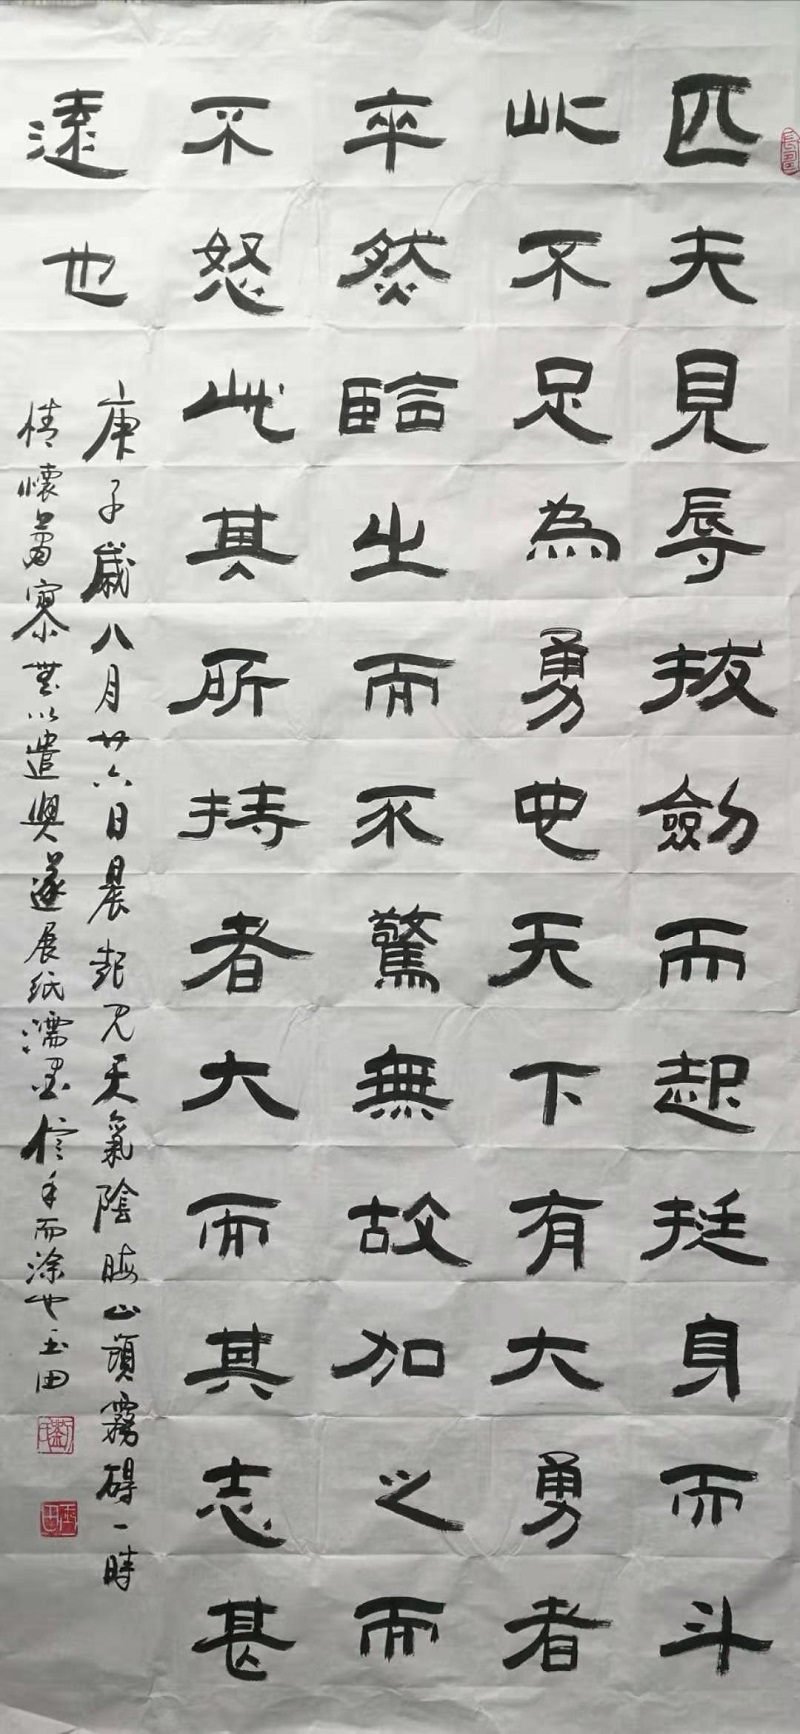 匹夫見辱拔劍而起挺身而斗
此不足為勇也天下有大勇者
卒然臨之而不驚無故加之而
不怒此其所持者大而其志甚
遠也
庚子歲八月廿六日晨起見天氣陰晦山頭霧碍一時
情懷蕭寥無以遣興遂展紙濡墨信手而涂也玉田